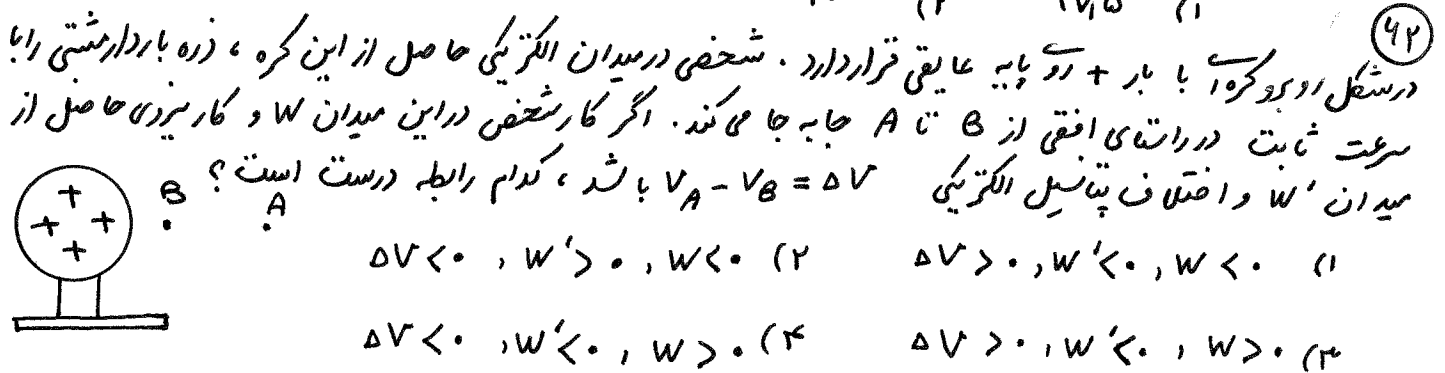 ۱) ۱۷٫۵ ۲)
۶۲
در شکل روبرو کره‌ای با بار + روی پایه عایقی قرار دارد . شخصی در میدان الکتریکی حاصل از این کره ، ذره باردار مثبتی را با
سرعت ثابت در راستای افقی از B تا A جابه جا می‌کند. اگر کار شخص در این میدان W و کار نیروی حاصل از
میدان W' و اختلاف پتانسیل الکتریکی V_A - V_B = ΔV باشد ، کدام رابطه درست است ؟
B
A
+ + + +
۱) W < ۰ , W' < ۰ , ΔV > ۰ ۲) W < ۰ , W' > ۰ , ΔV < ۰
۳) W > ۰ , W' < ۰ , ΔV > ۰ ۴) W > ۰ , W' < ۰ , ΔV < ۰